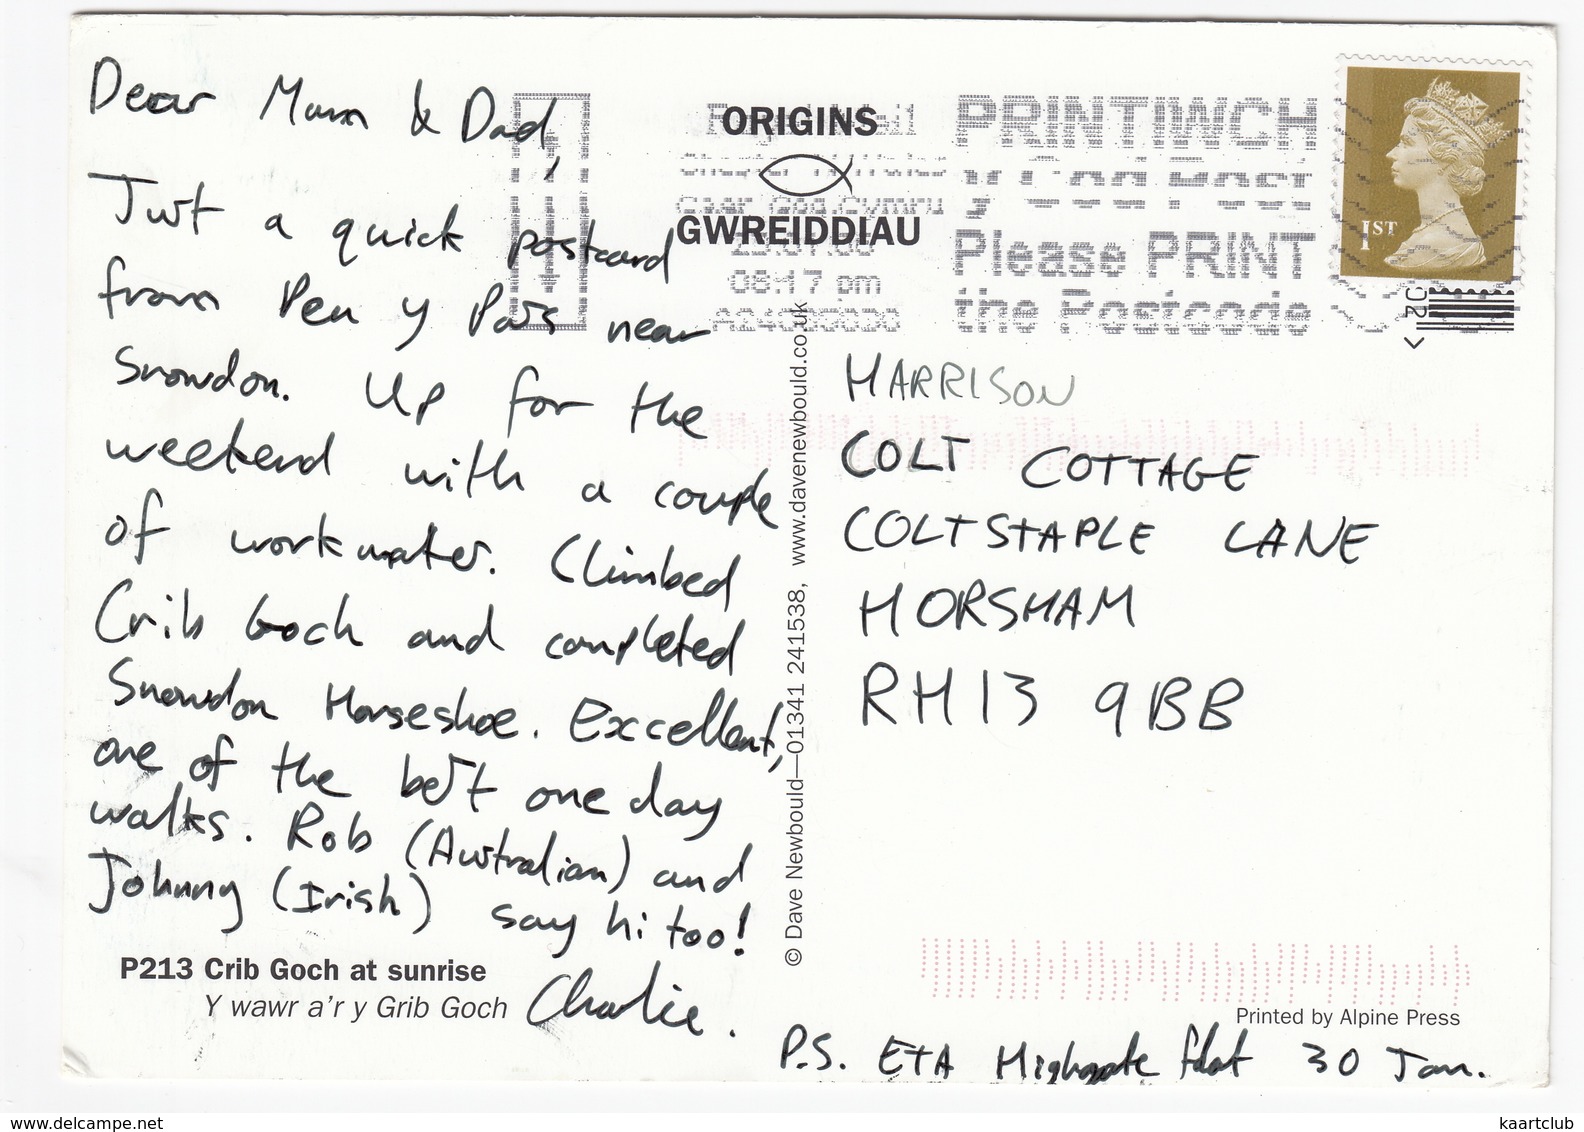 Dear Mum & Dad,
Just a quick postcard
from Pen y Pass near
Snowdon. Up for the
weekend with a couple
of workmates. Climbed
Crib Goch and completed
Snowdon Horseshoe. Excellent,
one of the best one day
walks. Rob (Australian) and
Johnny (Irish) say hi too!
Charlie.
P213 Crib Goch at sunrise
Y wawr a'r y Grib Goch
ORIGINS
GWREIDDIAU
06:17 pm
Please PRINT
the Postcode
1ST
© Dave Newbould—01341 241538, www.davenewbould.co.uk
HARRISON
COLT COTTAGE
COLTSTAPLE LANE
HORSHAM
RH13 9BB
Printed by Alpine Press
P.S. ETA Highgate flat 30 Jan.
www.delcampe.net
kaartclub